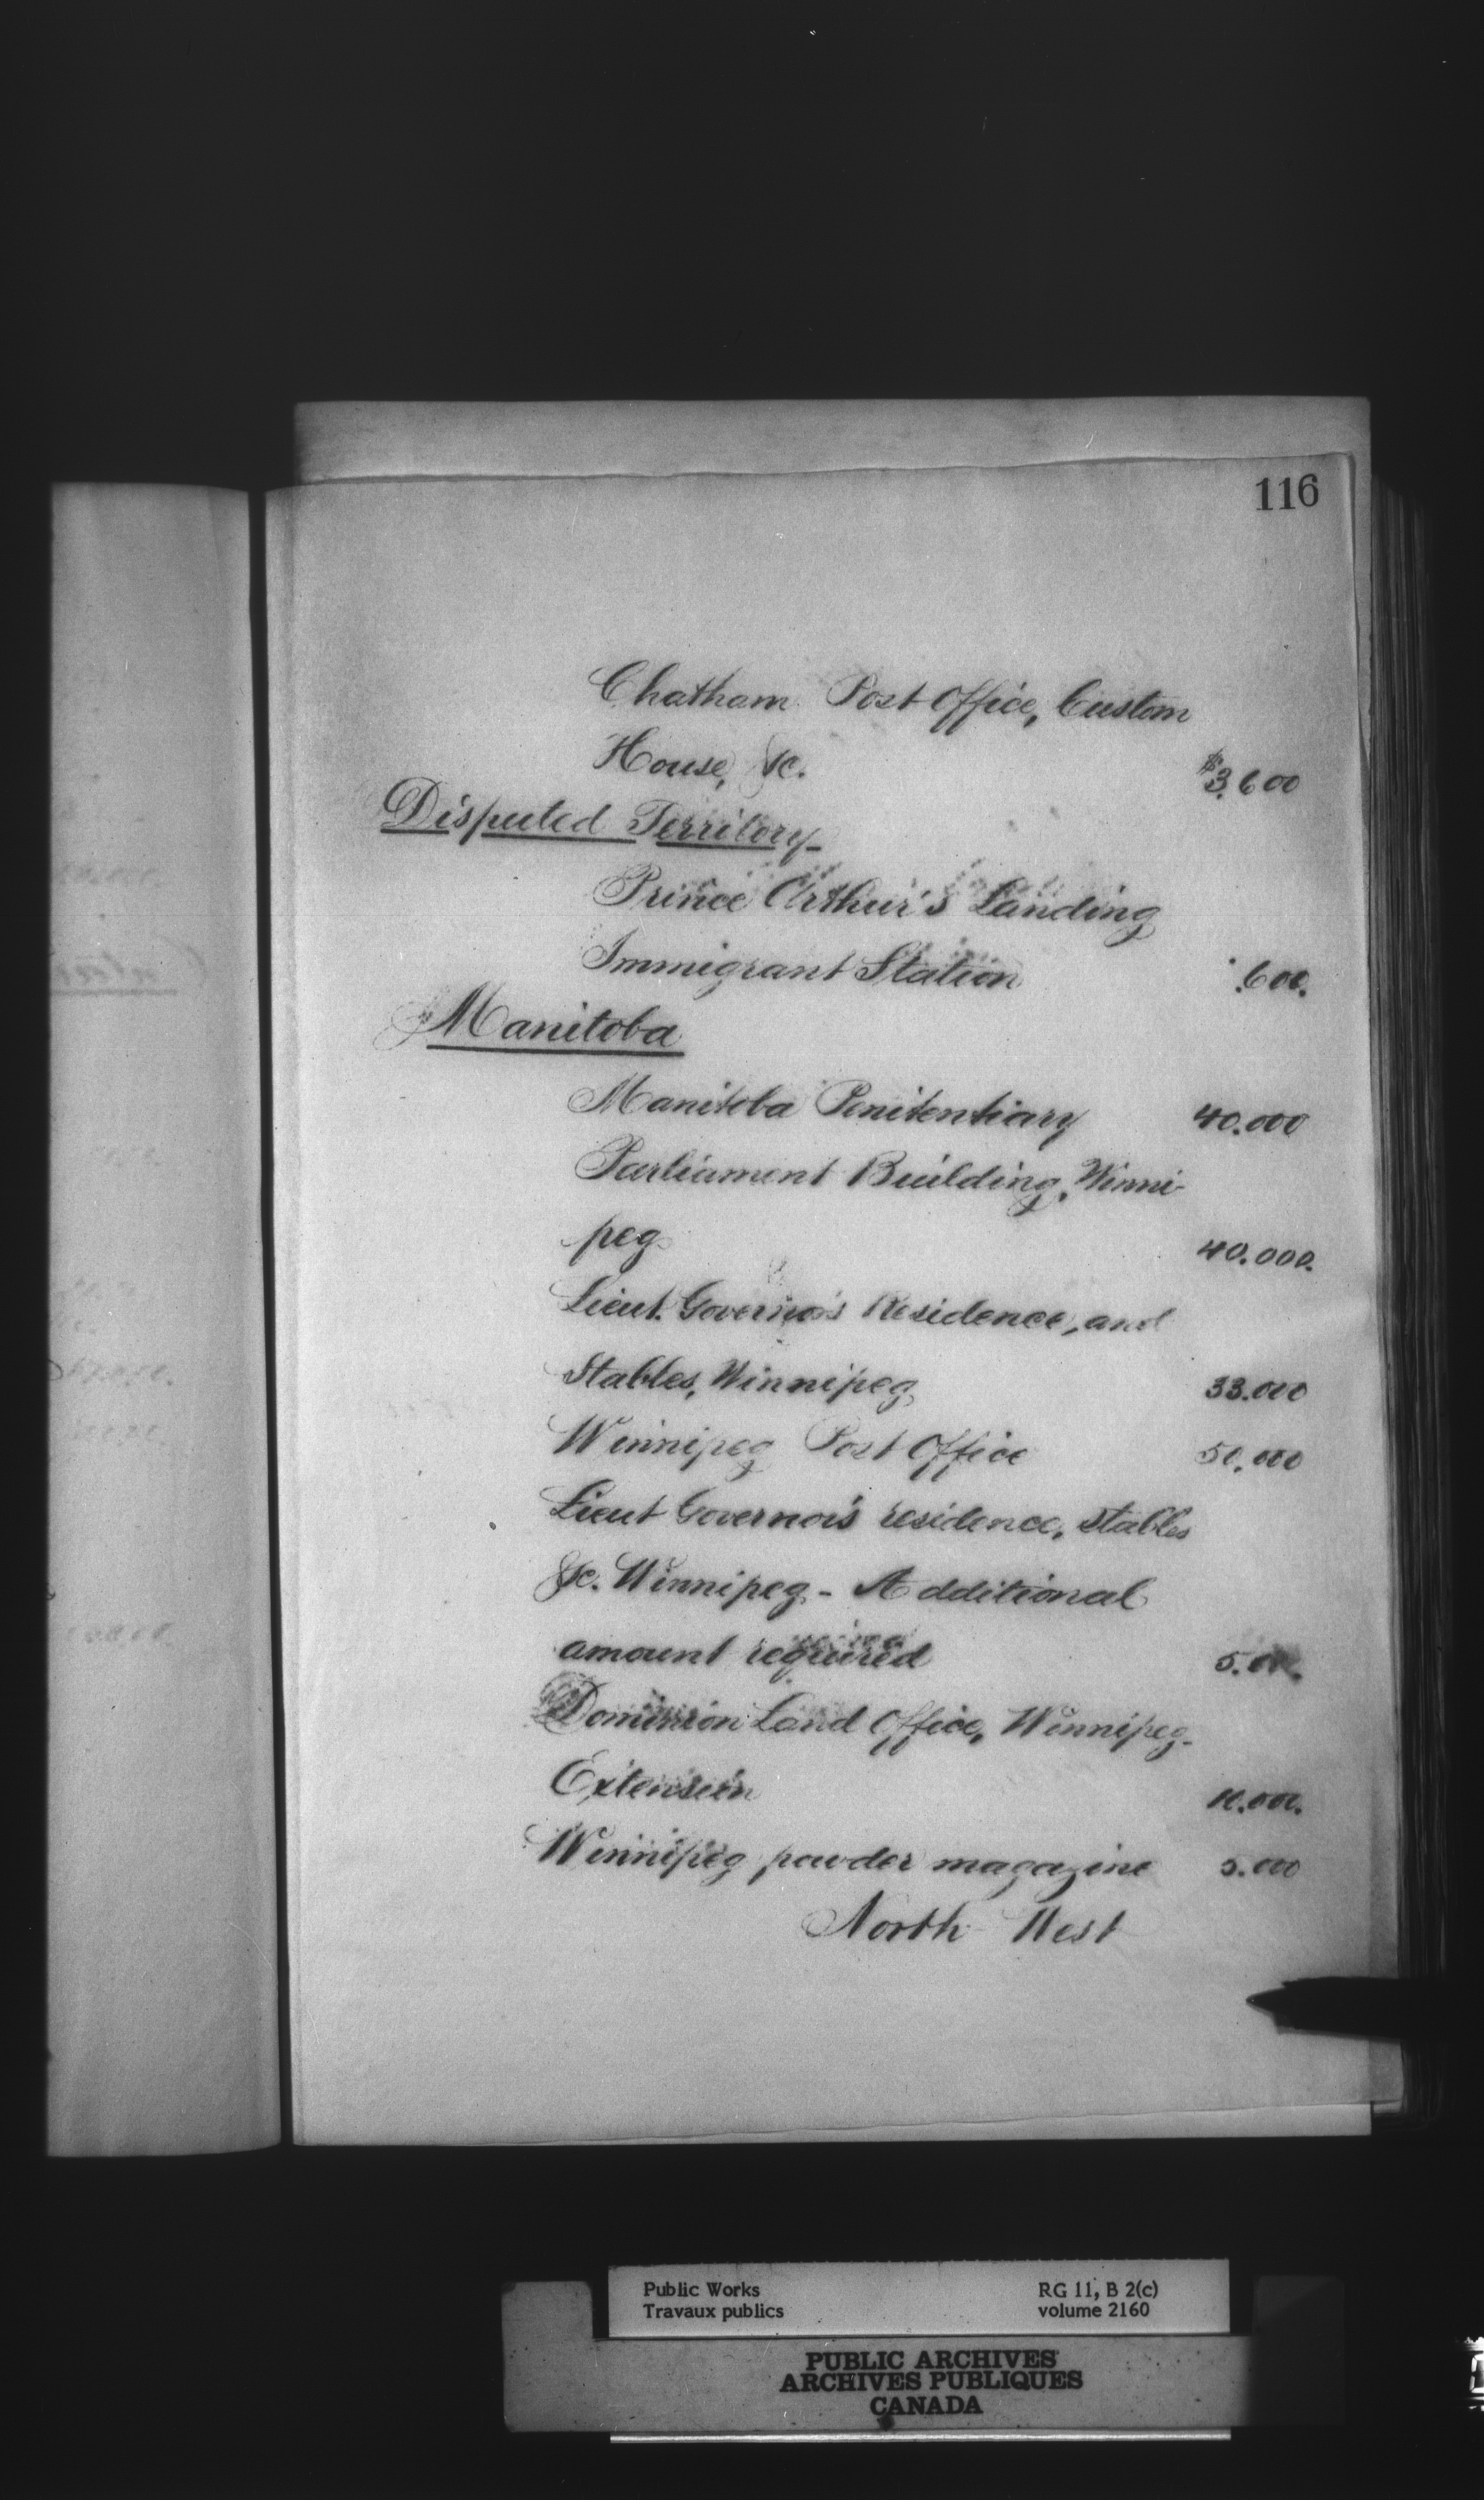 116
Chatham Post Office, Custom
House, &c. $3.600
Disputed Territory-
Prince Arthur's Landing
Immigrant Station .600.
Manitoba
Manitoba Penitentiary 40.000
Parliament Building, Winni-
peg 40.000.
Lieut. Governor's Residence, and
Stables, Winnipeg 33.000
Winnipeg Post Office 50.000
Lieut Governor's residence, stables
&c. Winnipeg - Additional
amount required
Dominion Land Office, Winnipeg-
Extension 10.000.
Winnipeg powder magazine 5.000
North West
Public Works RG 11, B 2(c)
Travaux publics volume 2160
PUBLIC ARCHIVES
ARCHIVES PUBLIQUES
CANADA